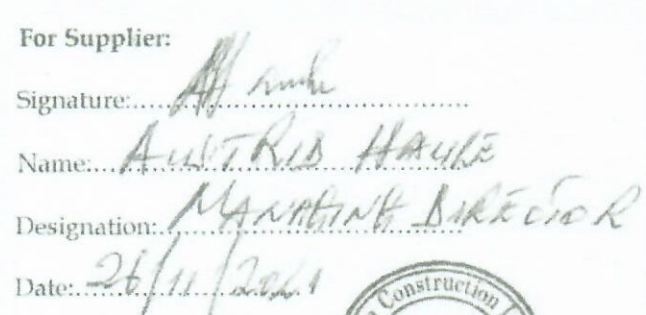 For Supplier:
Signature:
Name: HAULE
Designation: MANAGING DIRECTOR
Date: 26/11/2021
Construction